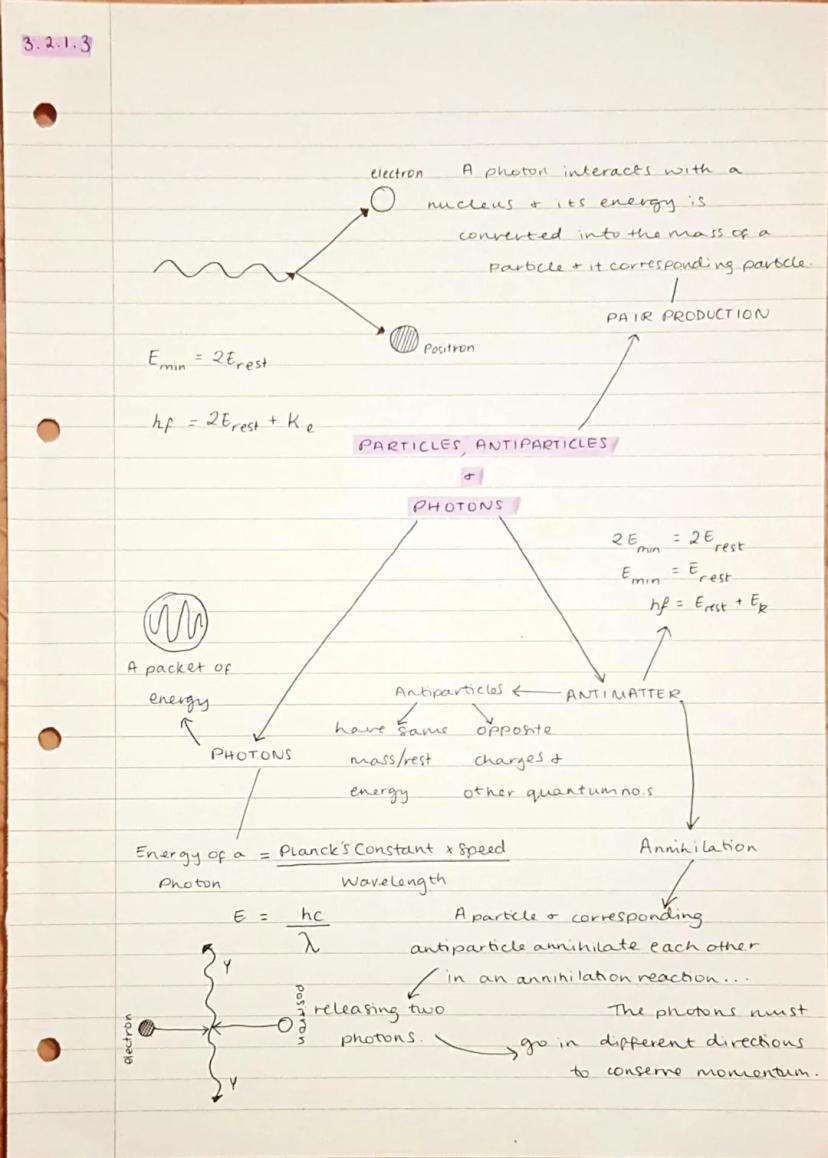 3.2.1.3
electron
A photon interacts with a
nucleus & its energy is
converted into the mass of a
particle & it corresponding particle.
PAIR PRODUCTION
Positron
E min = 2E rest
hf = 2E rest + K e
PARTICLES, ANTIPARTICLES
&
PHOTONS
2E min = 2E rest
E min = E rest
hf = E rest + E k
A packet of
energy
PHOTONS
Antiparticles ← ANTIMATTER
have same
mass/rest
energy
opposite
charges &
other quantum no.s
Energy of a Photon = Planck's Constant x Speed
Wavelength
E = hc
λ
Annihilation
A particle & corresponding
antiparticle annihilate each other
in an annihilation reaction...
releasing two
photons.
The photons must
go in different directions
to conserve momentum.
γ
electron
positron
γ